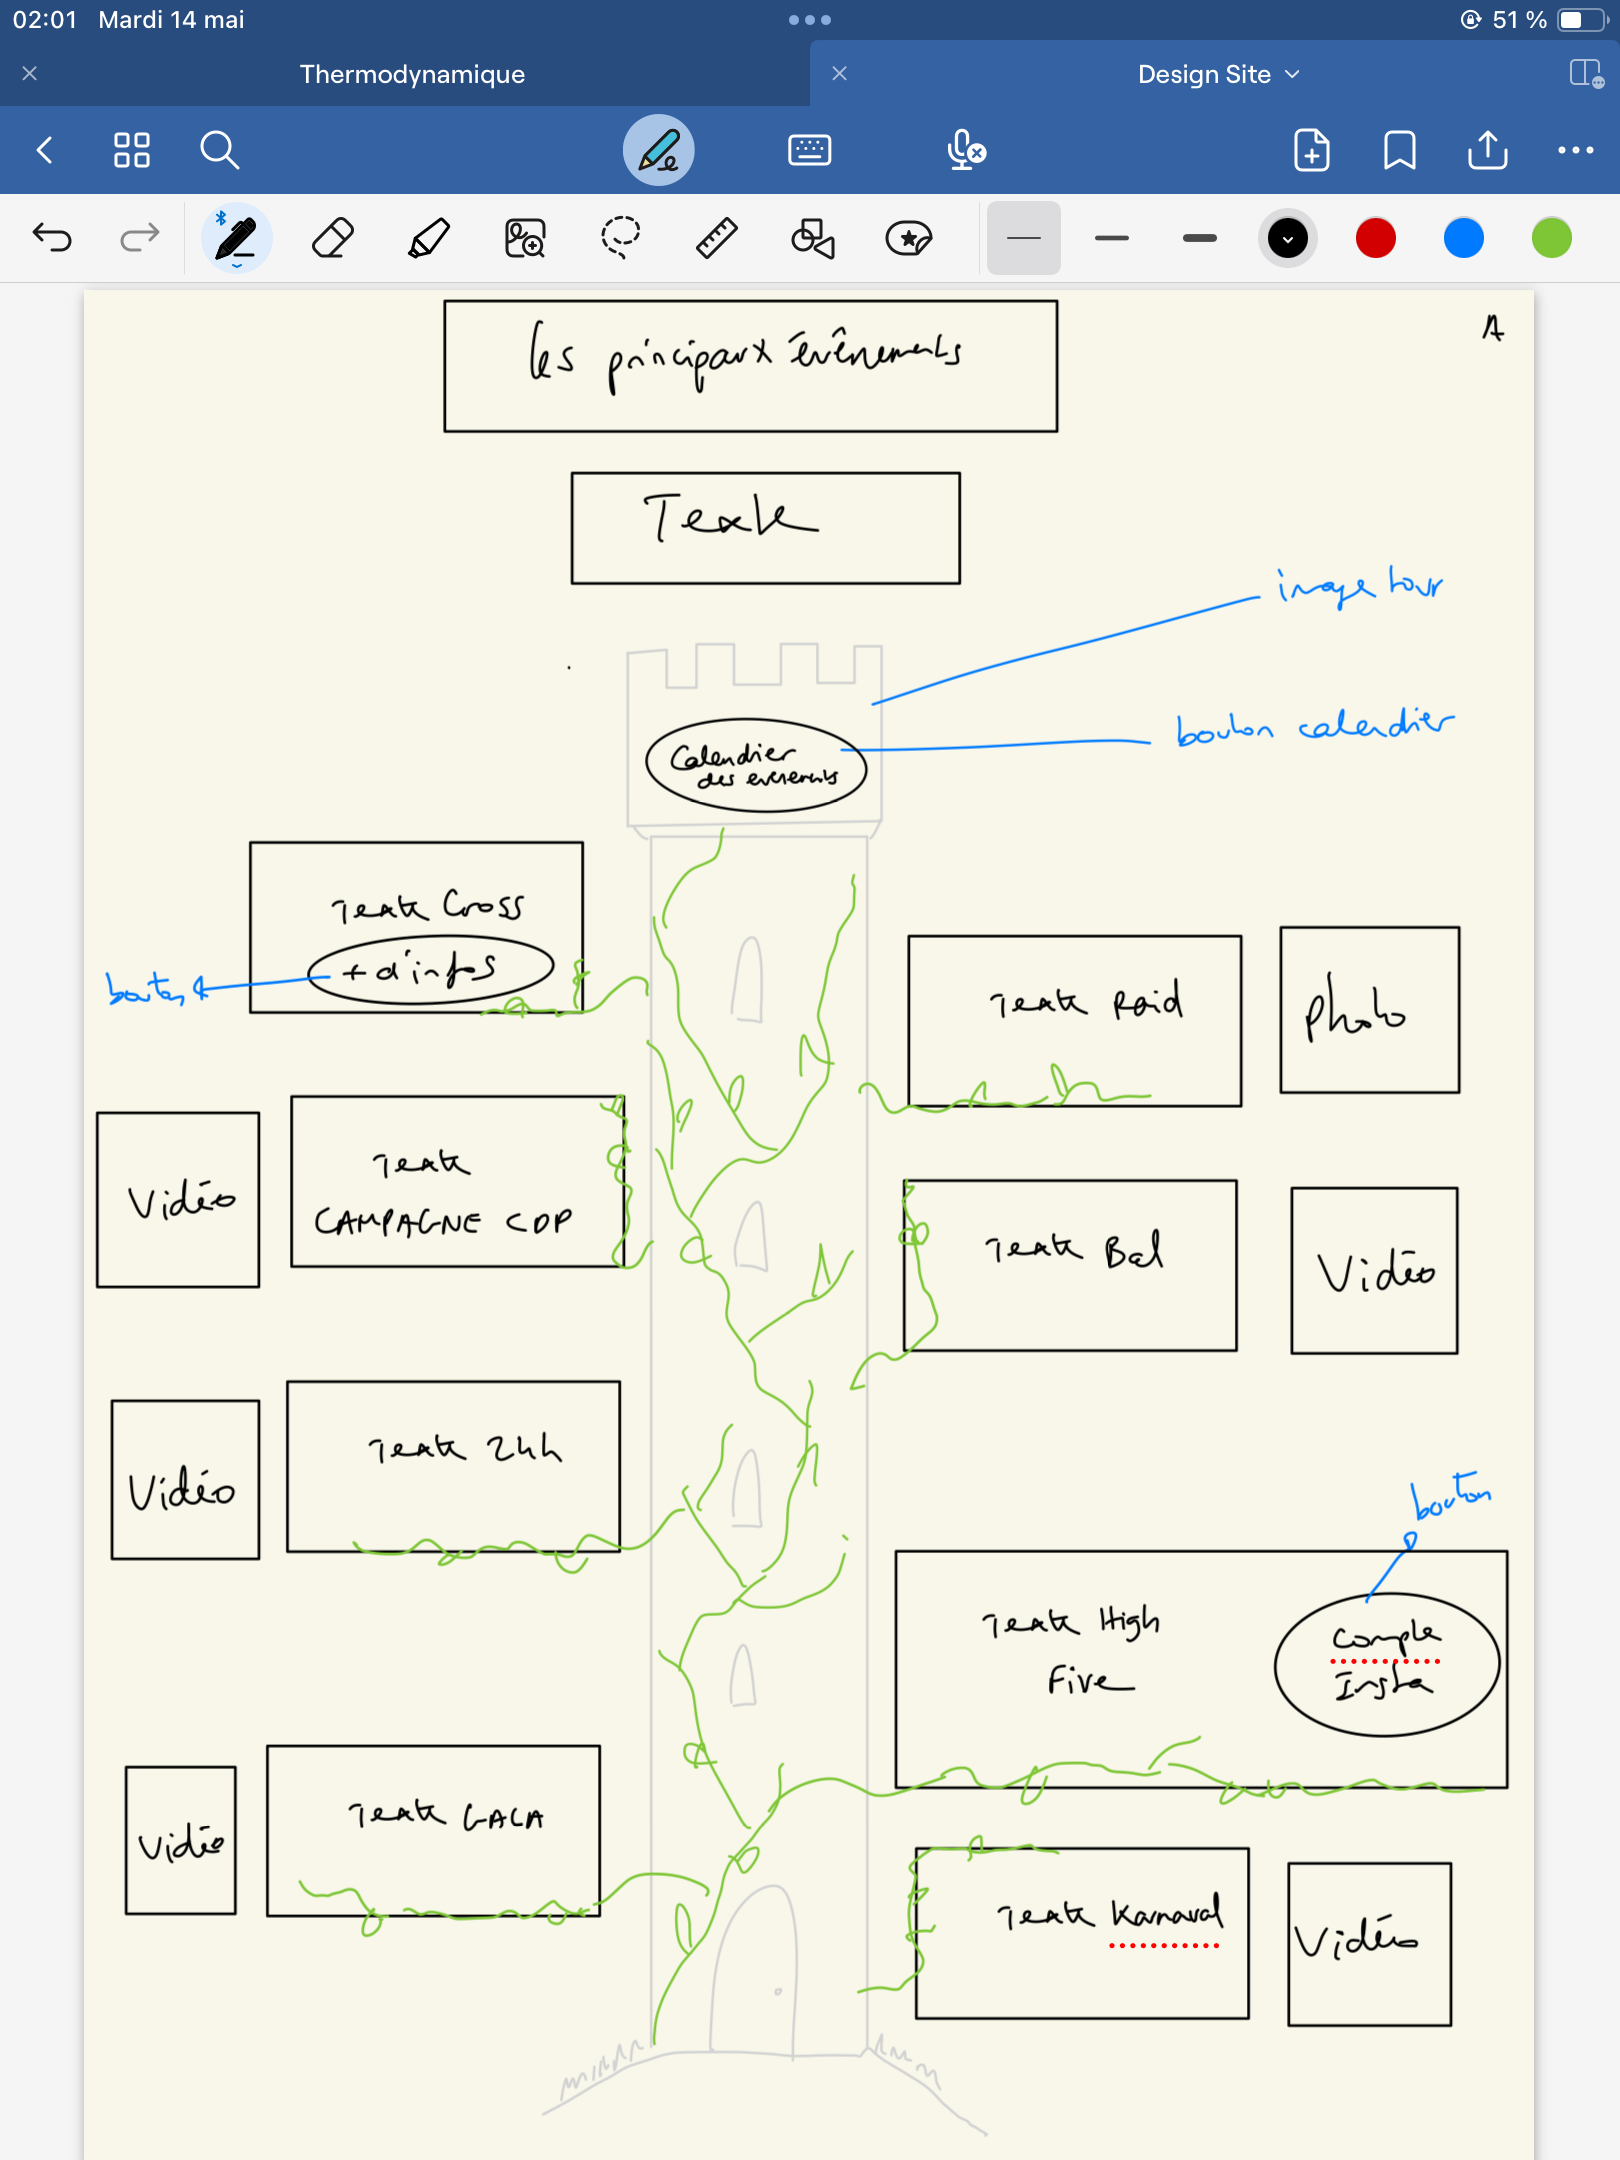 02:01 Mardi 14 mai
51 %
Thermodynamique
Design Site
Les principaux évênements
A
Texte
image tour
Calendier
des evenements
bouton calendier
Texte Cross
+ d'infos
bouton
Texte Raid
Photo
Vidéo
Texte
CAMPAGNE CDP
Texte Bal
Vidéo
Vidéo
Texte 24h
bouton
Texte High
Five
Compte
Insta
Vidéo
Texte GALA
Texte Karnaval
Vidéo